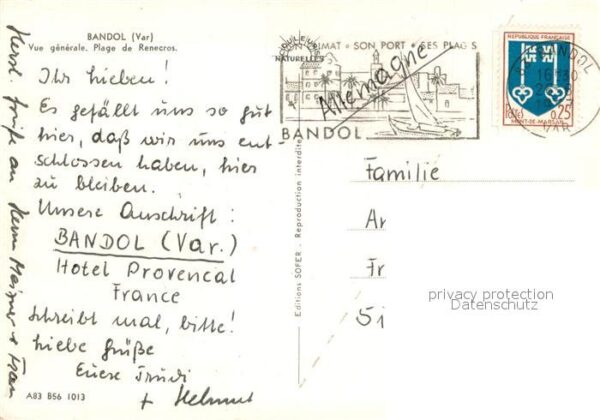 BANDOL (Var)
Vue générale. Plage de Renecros.
Ihr Lieben!
Es gefällt uns so gut
hier, daß wir uns ent-
schlossen haben, hier
zu bleiben.
Unsere Anschrift:
BANDOL (Var.)
Hotel Provencal
France
Schreibt mal, bitte!
Liebe Grüße
Euere Trudi
+ Helmut
Herzl. Grüße an Herrn Maimer + Frau
A83 B56 1013
COULEURS
NATURELLES
Editions SOFER - Reproduction interdite
SON CLIMAT * SON PORT * SES PLAGES
BANDOL
Allemagne
REPUBLIQUE FRANÇAISE
Postes 0,25
MONT-DE-MARSAN
BANDOL
VAR
Familie
Ar
Fr
51
privacy protection
Datenschutz